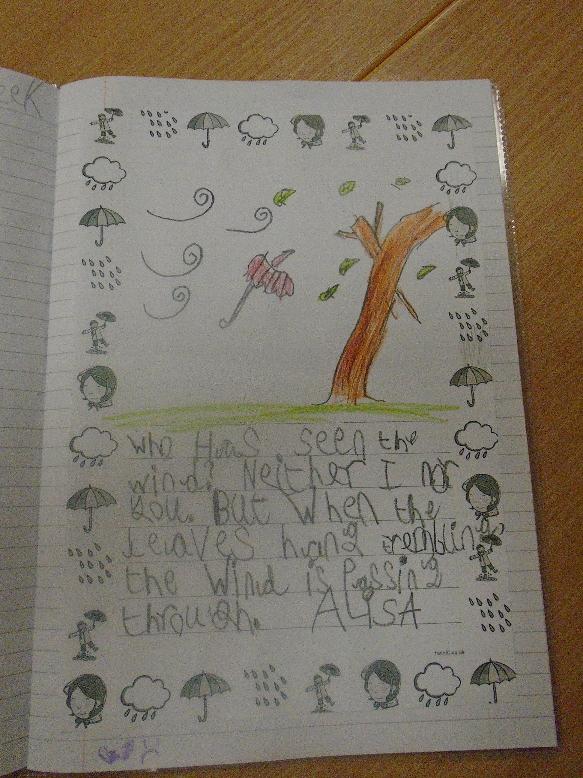 eek
who Has seen the
wind? Neither I nor
you. But when the
leaves hang tremblin
the wind is Passing
through. ALISA